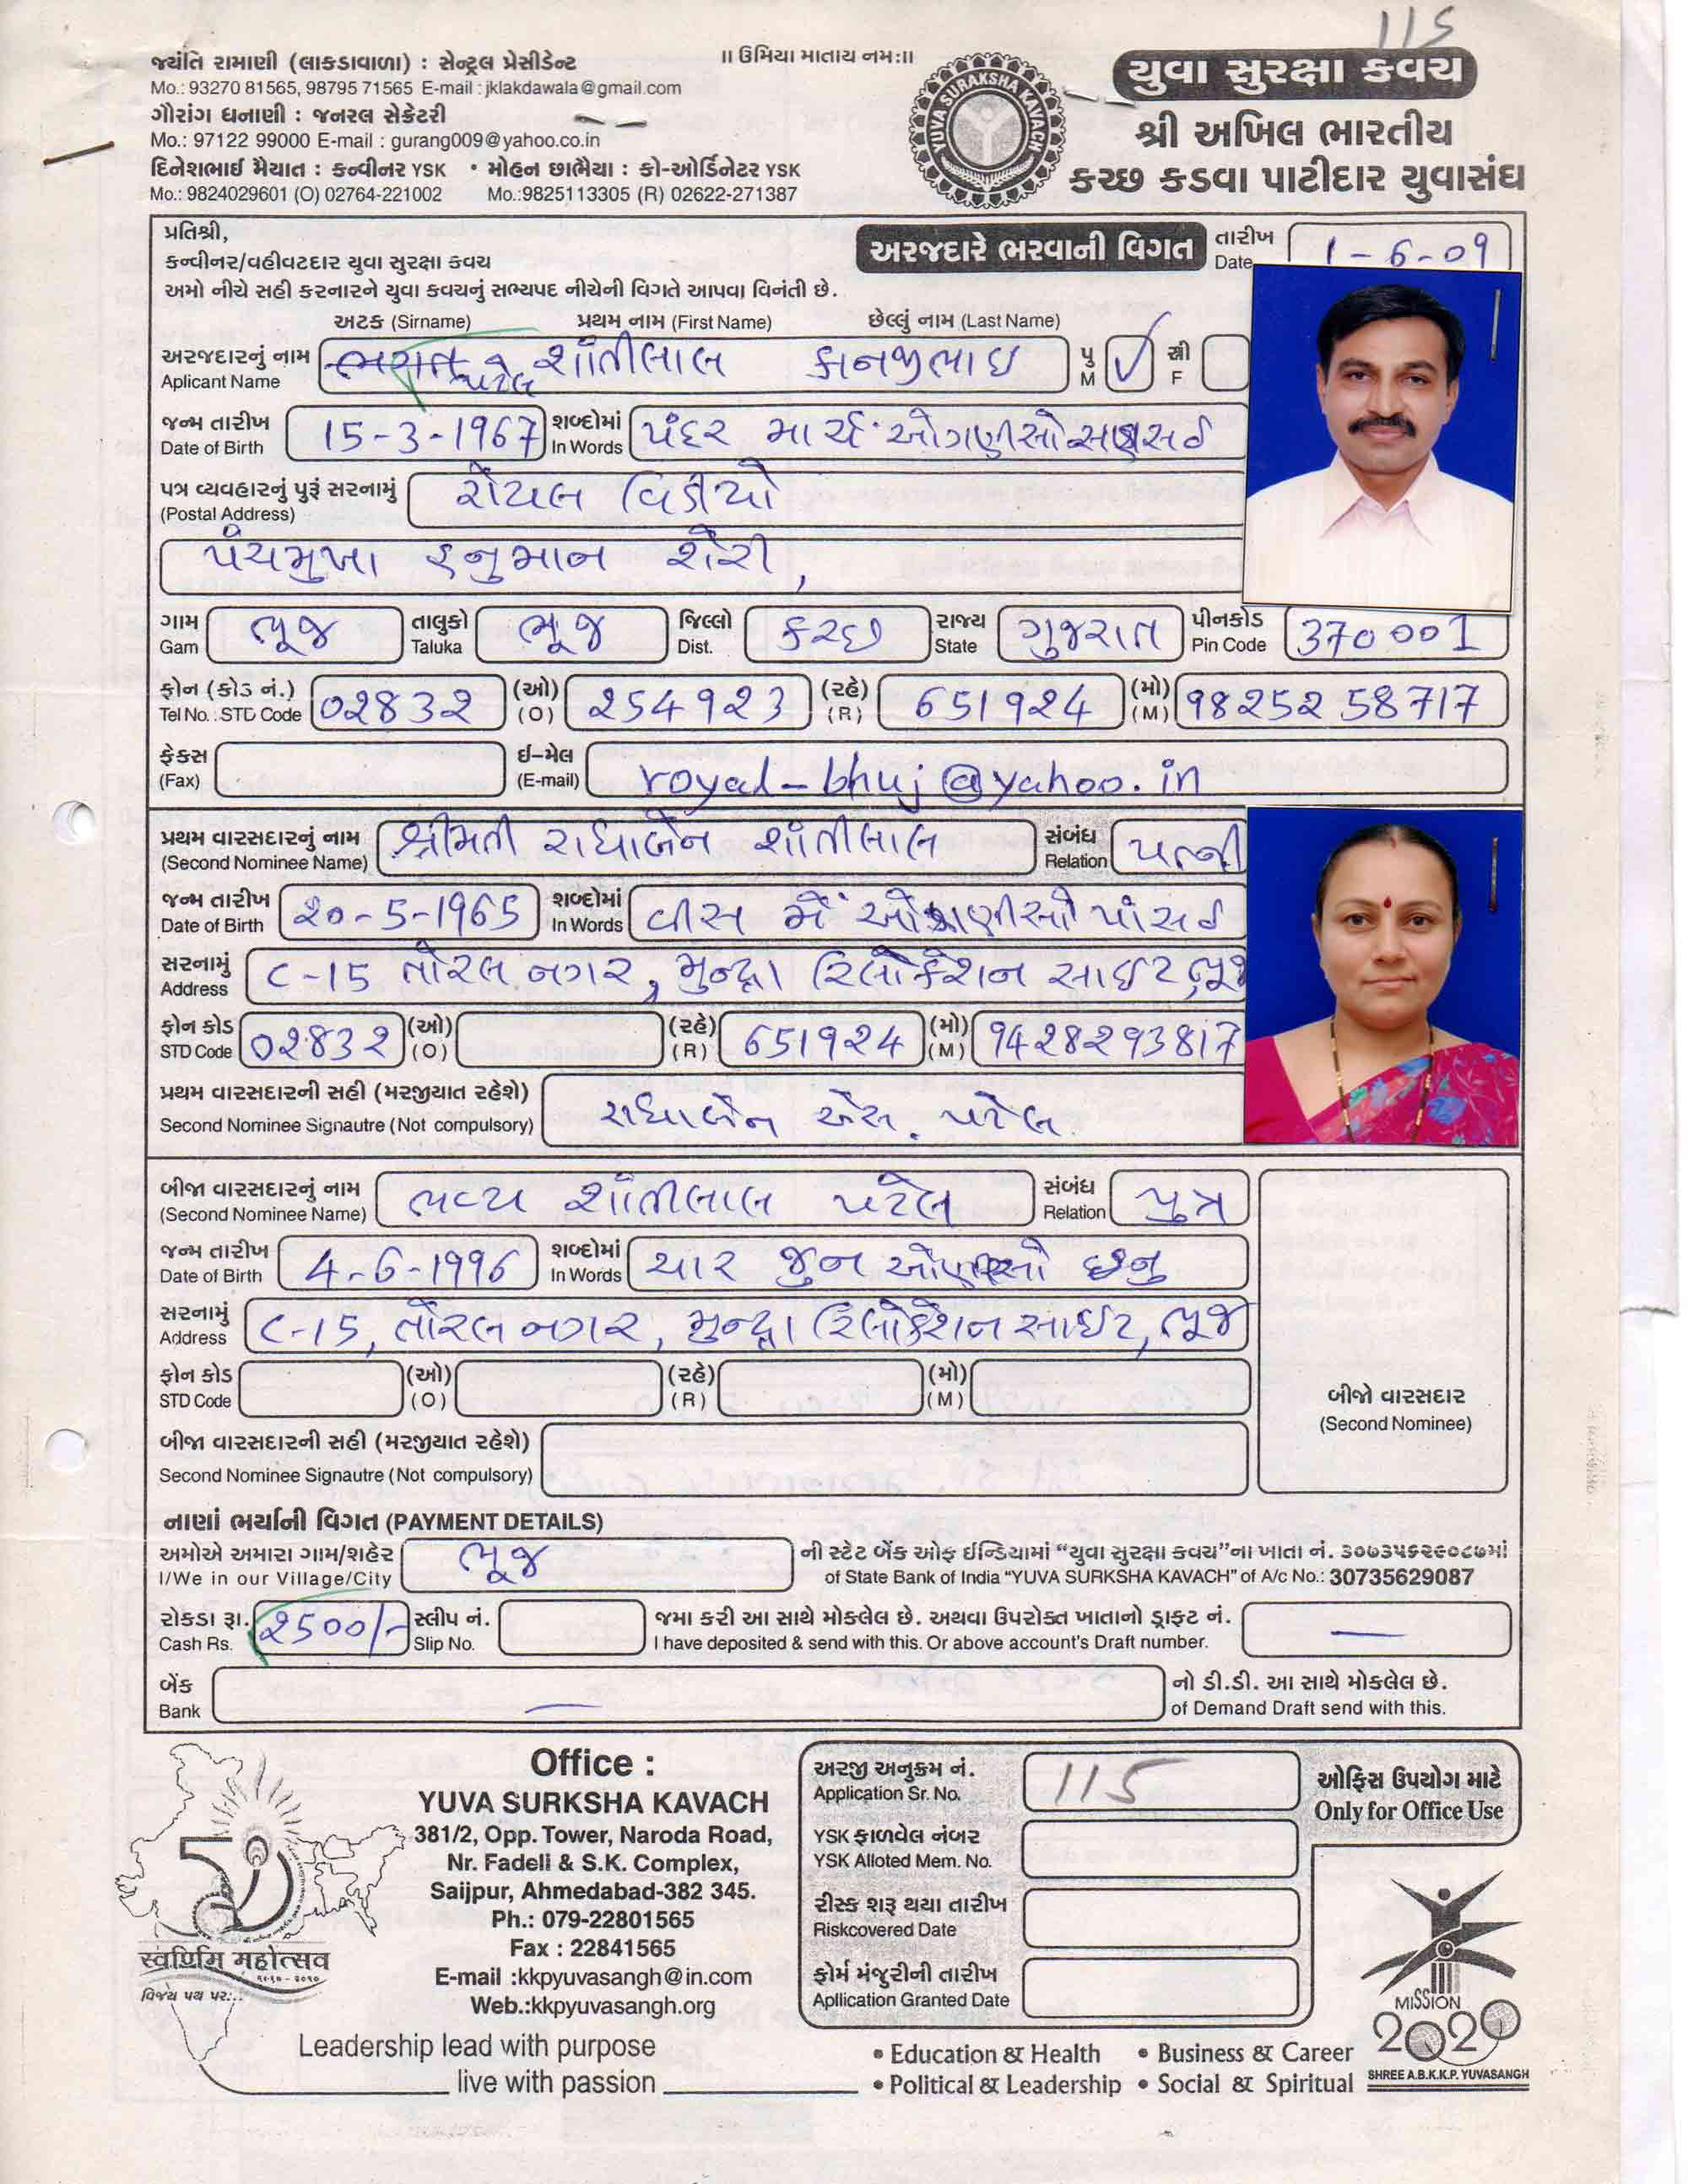 115
જયંતિ રામાણી (લાકડાવાળા) : સેન્ટ્રલ પ્રેસીડેન્ટ
Mo.: 93270 81565, 98795 71565 E-mail : jklakdawala@gmail.com
ગૌરાંગ ધનાણી : જનરલ સેક્રેટરી
Mo.: 97122 99000 E-mail : gurang009@yahoo.co.in
દિનેશભાઈ મૈયાત : કન્વીનર YSK • મોહન છાભૈયા : કો-ઓર્ડિનેટર YSK
Mo.: 9824029601 (O) 02764-221002 Mo.:9825113305 (R) 02622-271387
॥ ઉમિયા માતાય નમઃ॥
YUVA SURAKSHA KAVACH
યુવા સુરક્ષા કવચ
શ્રી અખિલ ભારતીય
કચ્છ કડવા પાટીદાર યુવાસંઘ
પ્રતિશ્રી,
કન્વીનર/વહીવટદાર યુવા સુરક્ષા કવચ
અમો નીચે સહી કરનારને યુવા કવચનું સભ્યપદ નીચેની વિગતે આપવા વિનંતી છે.
અરજદારે ભરવાની વિગત
તારીખ Date 1-6-09
અટક (Sirname) પ્રથમ નામ (First Name) છેલ્લું નામ (Last Name)
અરજદારનું નામ Aplicant Name પટેલ શાંતીલાલ કાનજીભાઇ પુ M ✓ સ્રી F
જન્મ તારીખ Date of Birth 15-3-1967 શબ્દોમાં In Words પંદર માર્ચ ઓગણીસો
પત્ર વ્યવહારનું પુરૂં સરનામું (Postal Address) રોયલ વિડીયો
પંચમુખા હનુમાન શેરી,
ગામ Gam ભૂજ તાલુકો Taluka ભૂજ જિલ્લો Dist. કચ્છ રાજ્ય State ગુજરાત પીનકોડ Pin Code 370 001
ફોન (કોડ નં.) Tel No. : STD Code 02832 (ઓ) (O) 254923 (રહે) (R) 651924 (મો) (M) 98252 58717
ફેકસ (Fax) ઈ-મેલ (E-mail) royal-bhuj@yahoo.in
પ્રથમ વારસદારનું નામ (Second Nominee Name) શ્રીમતી રાધાબેન શાંતીલાલ સંબંધ Relation પત્ની
જન્મ તારીખ Date of Birth 20-5-1965 શબ્દોમાં In Words વીસ મેં પાંસઠ
સરનામું Address C-15 તોરલ નગર, મુન્દ્રા રિલોકેશન સાઇટ, ભૂજ
ફોન કોડ STD Code 02832 (ઓ) (O) (રહે) (R) 651924 (મો) (M) 9428293817
પ્રથમ વારસદારની સહી (મરજીયાત રહેશે) Second Nominee Signautre (Not compulsory) રાધાબેન એસ. પટેલ
બીજા વારસદારનું નામ (Second Nominee Name) ભવ્ય શાંતીલાલ પટેલ સંબંધ Relation પુત્ર
જન્મ તારીખ Date of Birth 4-6-1996 શબ્દોમાં In Words ચાર જુન છન્નુ
સરનામું Address C-15, તોરલ નગર, મુન્દ્રા રિલોકેશન સાઇટ, ભૂજ
ફોન કોડ STD Code (ઓ) (O) (રહે) (R) (મો) (M)
બીજા વારસદારની સહી (મરજીયાત રહેશે)
Second Nominee Signautre (Not compulsory)
બીજો વારસદાર
(Second Nominee)
નાણાં ભર્યાની વિગત (PAYMENT DETAILS)
અમોએ અમારા ગામ/શહેર I/We in our Village/City ભૂજ ની સ્ટેટ બેંક ઓફ ઈન્ડિયામાં “યુવા સુરક્ષા કવચ”ના ખાતા નં. ૩૦૭૩૫૬૨૯૦૮૭માં
of State Bank of India "YUVA SURKSHA KAVACH" of A/c No.: 30735629087
રોકડા રૂા. Cash Rs. 2500/- સ્લીપ નં. Slip No. જમા કરી આ સાથે મોકલેલ છે. અથવા ઉપરોક્ત ખાતાનો ડ્રાફ્ટ નં.
I have deposited & send with this. Or above account's Draft number. —
બેંક Bank — નો ડી.ડી. આ સાથે મોકલેલ છે.
of Demand Draft send with this.
સ્વર્ણિમ મહોત્સવ
૧૯૬૦ - ૨૦૧૦
વિજય પથ પર...
Office :
YUVA SURKSHA KAVACH
381/2, Opp. Tower, Naroda Road,
Nr. Fadeli & S.K. Complex,
Saijpur, Ahmedabad-382 345.
Ph.: 079-22801565
Fax : 22841565
E-mail :kkpyuvasangh@in.com
Web.:kkpyuvasangh.org
Leadership lead with purpose
live with passion
અરજી અનુક્રમ નં. Application Sr. No. 115
YSK ફાળવેલ નંબર YSK Alloted Mem. No.
રીસ્ક શરૂ થયા તારીખ Riskcovered Date
ફોર્મ મંજુરીની તારીખ Apllication Granted Date
ઓફિસ ઉપયોગ માટે
Only for Office Use
• Education & Health • Business & Career
• Political & Leadership • Social & Spiritual
MISSION
2020
SHREE A.B.K.K.P. YUVASANGH